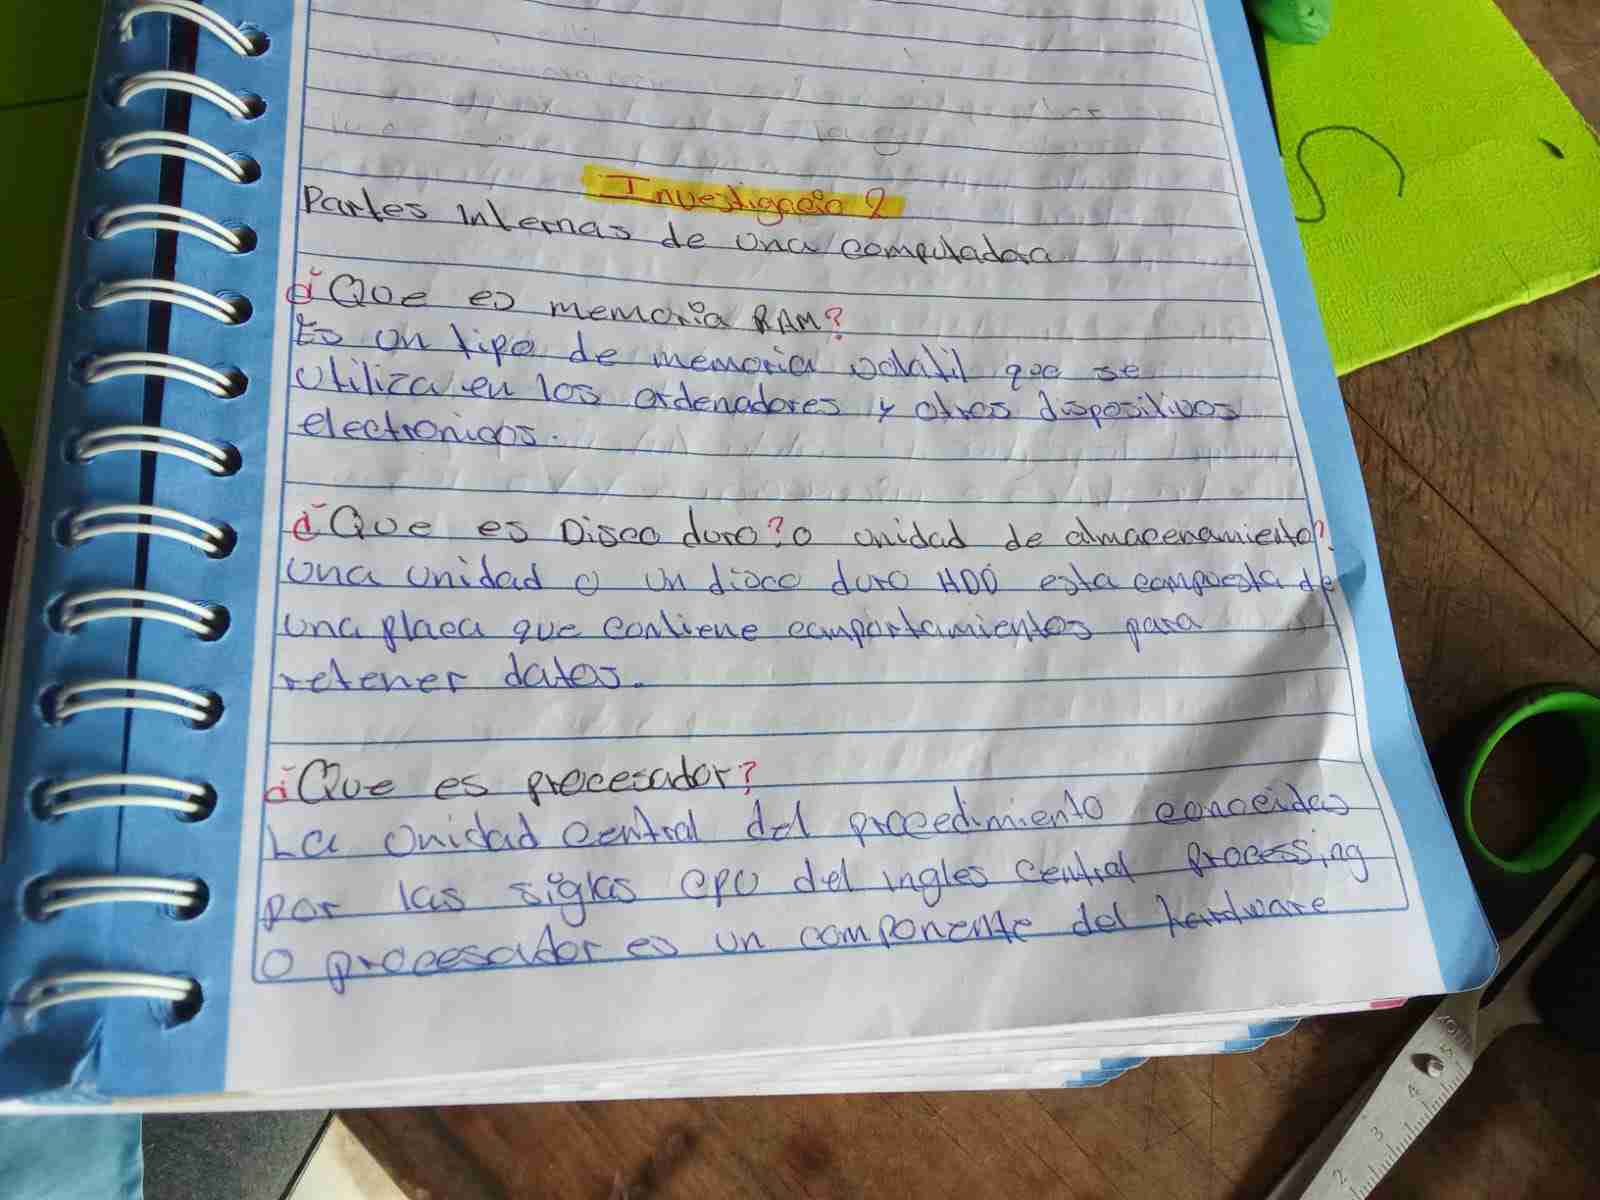 Investigacio 2
Partes internas de una computadora
¿Que es memoria RAM?
Es un tipo de memoria volatil que se
utiliza en los ordenadores y otros dispositivos
electronicos.
¿Que es Disco duro? o unidad de almacenamiento?
una unidad o un disco duro HDD esta compuesta de
una placa que contiene comportamientos para
retener datos.
¿Que es procesador?
La unidad central del procedimiento conocidas
por las siglas CPU del ingles central processing
o procesador es un componente del hardware
5
4
3
2